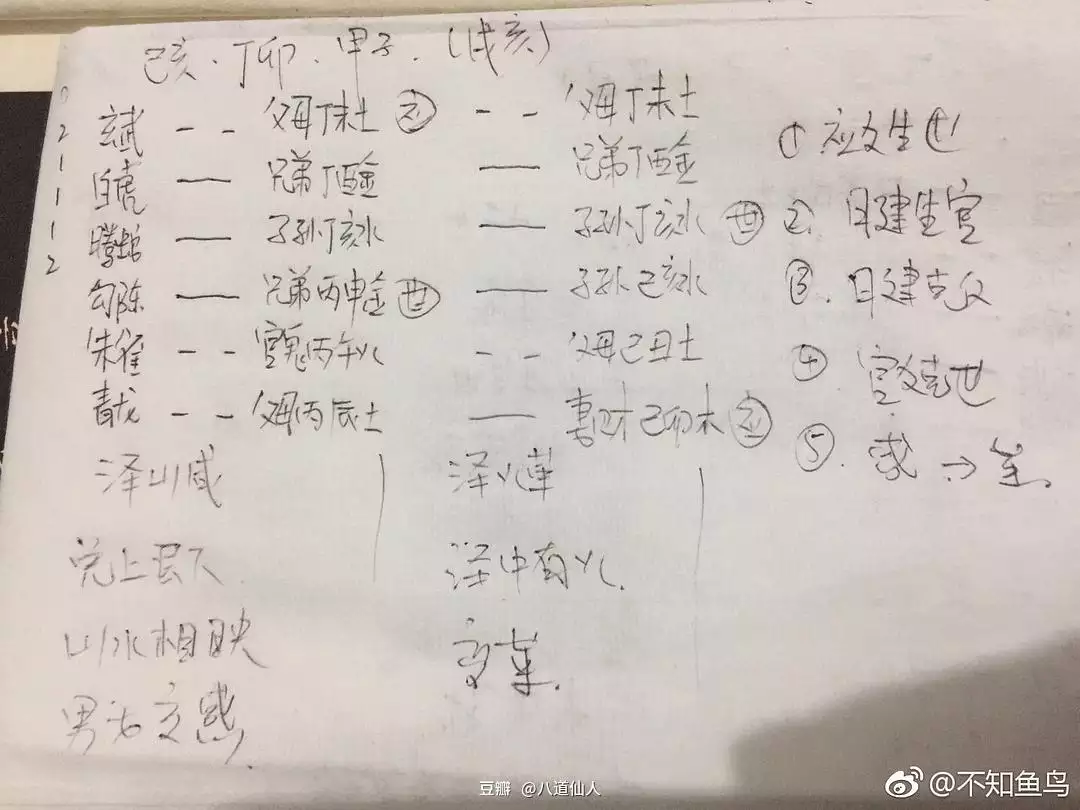 己亥.丁卯.甲子.(戌亥)
2 玄武 -- 父母丁未土 应 -- 父母丁未土
1 白虎 — 兄弟丁酉金 — 兄弟丁酉金
1 螣蛇 — 子孙丁亥水 — 子孙丁亥水 世
1 勾陈 — 兄弟丙申金 世 — 子孙己亥水
2 朱雀 -- 官鬼丙午火 -- 父母己丑土
青龙 -- 父母丙辰土 — 妻财己卯木 应
① 应爻生世
②. 日建生官
③. 日建克父
④ 官爻克世
⑤.
泽山咸
兑上艮下
山水相映
男女交感.
泽火革
泽中有火.
变革.
豆瓣 @八道仙人
@不知鱼鸟